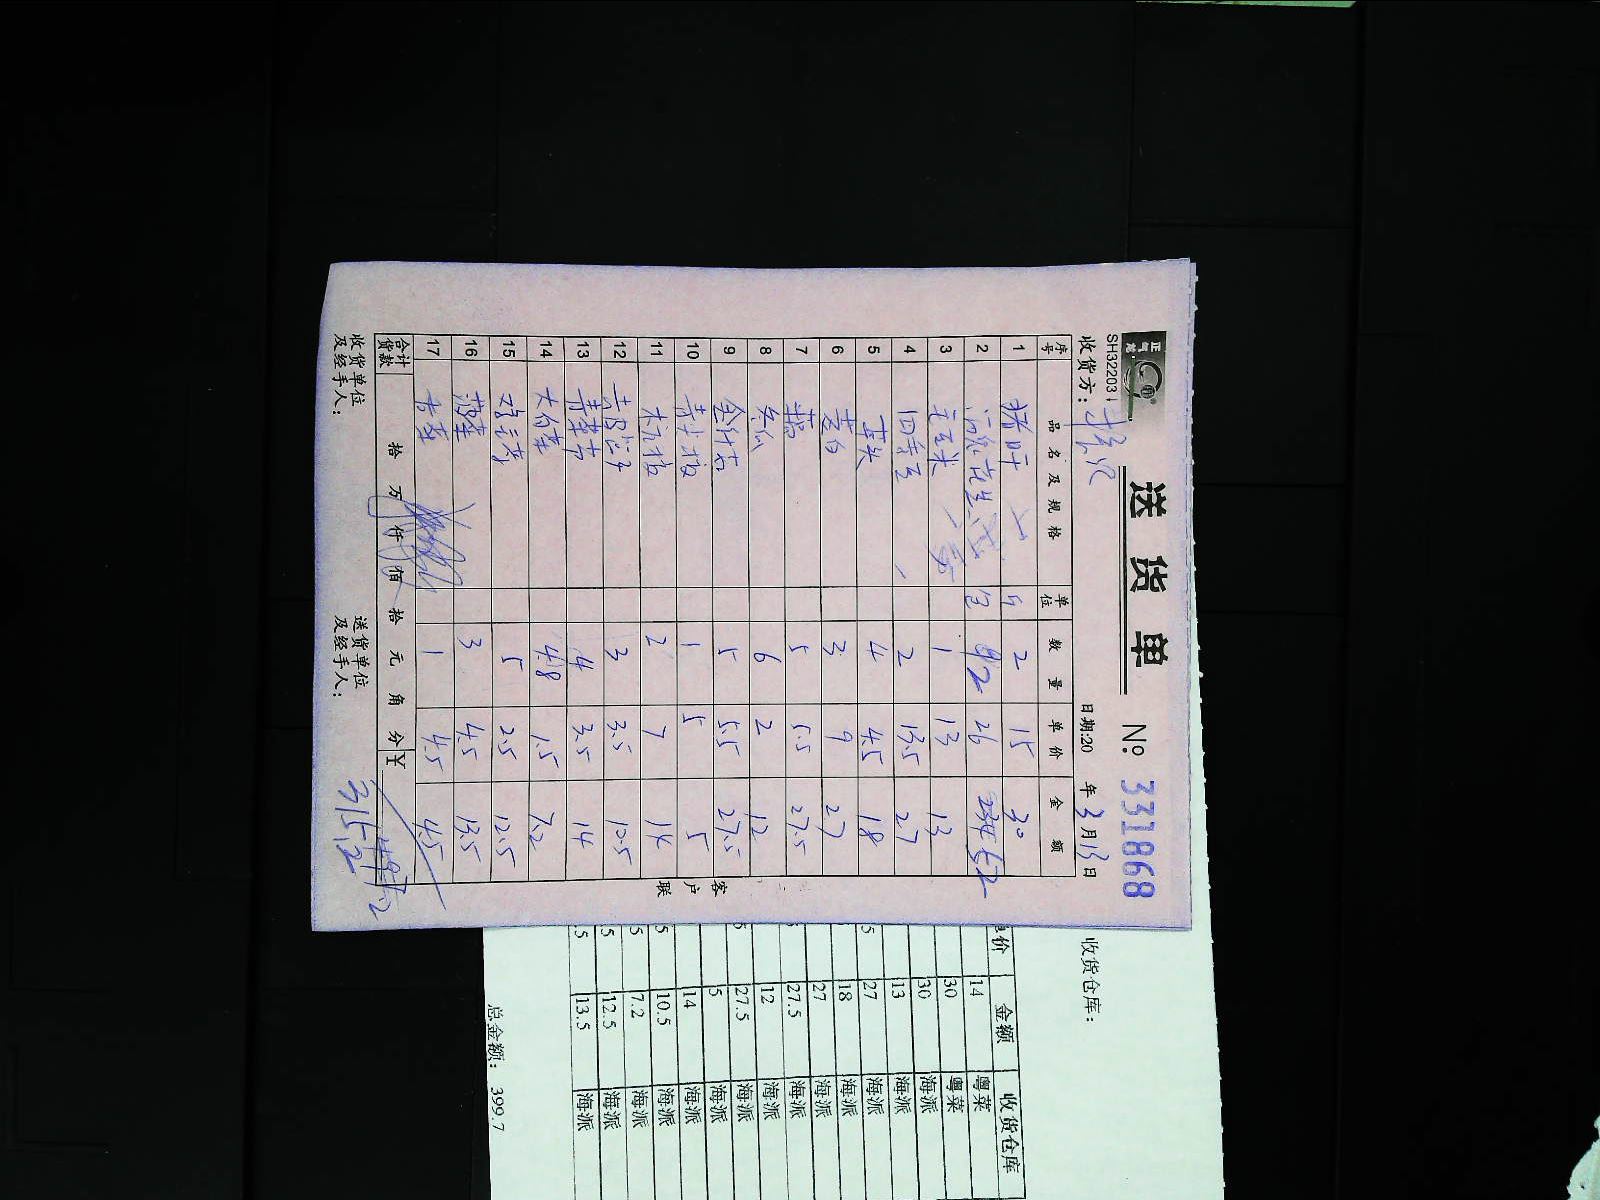 正气
SH32203-1
送货单
No 331868
收货方：
日期:20 年3月13日
序号 品名及规格 单位 数量 单价 金额
1 斤 2 15 30
2 包 2 26 52
3 玉米 1 13 13
4 四季豆 2 13.5 27
5 4 4.5 18
6 茭白 3 9 27
7 5 5.5 27.5
8 冬瓜 6 2 12
9 金针菇 5 5.5 27.5
10 青尖椒 1 5 5
11 杭椒 2 7 14
12 3 3.5 10.5
13 4 3.5 14
14 大白菜 4.8 1.5 7.2
15 5 2.5 12.5
16 菠菜 3 4.5 13.5
17 1 4.5 4.5
合计货款 拾 万 仟 佰 拾 元 角 分 ¥
315.2
收货单位及经手人：
送货单位及经手人：
客户联
收货仓库：
单价 金额 收货仓库
14 粤菜
30 粤菜
30 海派
13 海派
27 海派
5 18 海派
27 海派
27.5 海派
12 海派
27.5 海派
5 海派
5 14 海派
5 10.5 海派
5 7.2 海派
5 12.5
5 13.5 海派
总金额： 399.7